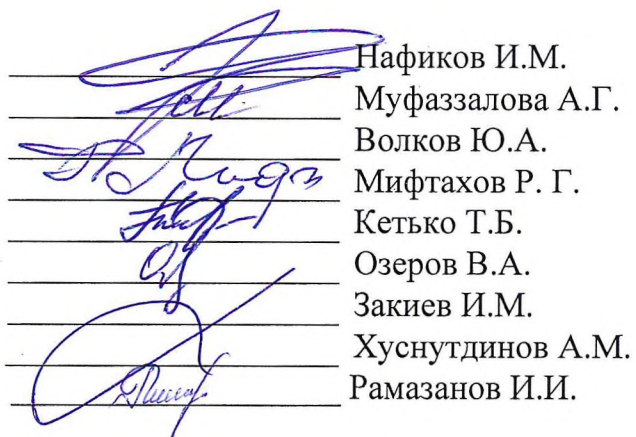 Нафиков И.М.
Муфаззалова А.Г.
Волков Ю.А.
Мифтахов Р. Г.
Кетько Т.Б.
Озеров В.А.
Закиев И.М.
Хуснутдинов А.М.
Рамазанов И.И.